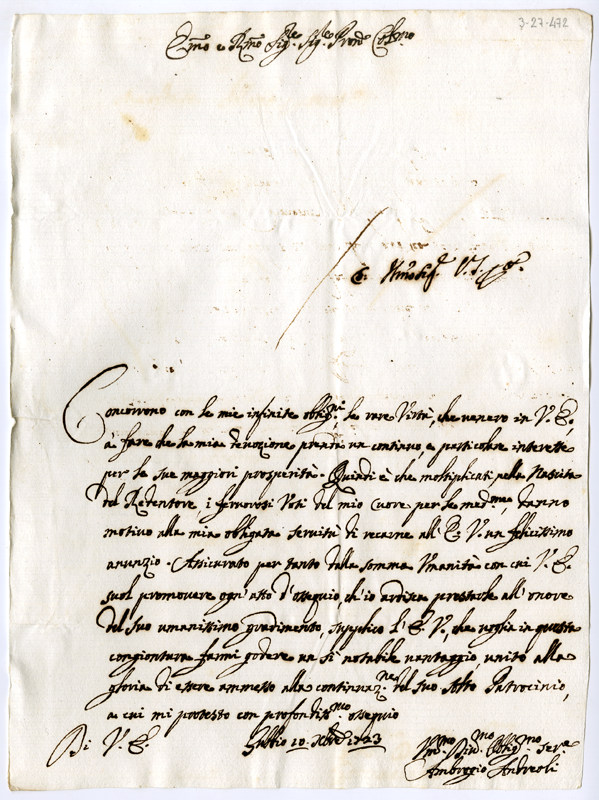 3-27-472
Emo e Rmo Sigre Sigre Prone Colmo
Concorrono con le mie infinite obbligni, le rare Virtù, che venero in V. E.
à fare che la mia devozione prenda un continuo, e particolare interesse
per le sue maggiori prosperità. Quindi è che moltiplicati nella Nascita
del Redentore, i fervorosi Voti del mio Cuore per le medme, danno
motivo alla mia obligata servitù di recarne all' E. V. un felicissimo
anunzio. Assicurato per tanto dalla somma Vmanità con cui V. E.
suol promovere ogn' atto d'ossequio, ch' io ardisca prestarle all' onore
del suo umanissimo gradimento, supplico l' E. V., che voglia in questa
congiontura farmi godere un sì notabile vantaggio, unito alla
gloria di essere ammesso alla continuazne del suo Alto Patrocinio,
a cui mi protesto con profondissmo ossequio
Di V. E.
Gubbio 10. Xbre 1723
Vmo Dino Obbligmo serre
Ambrogio Andreoli